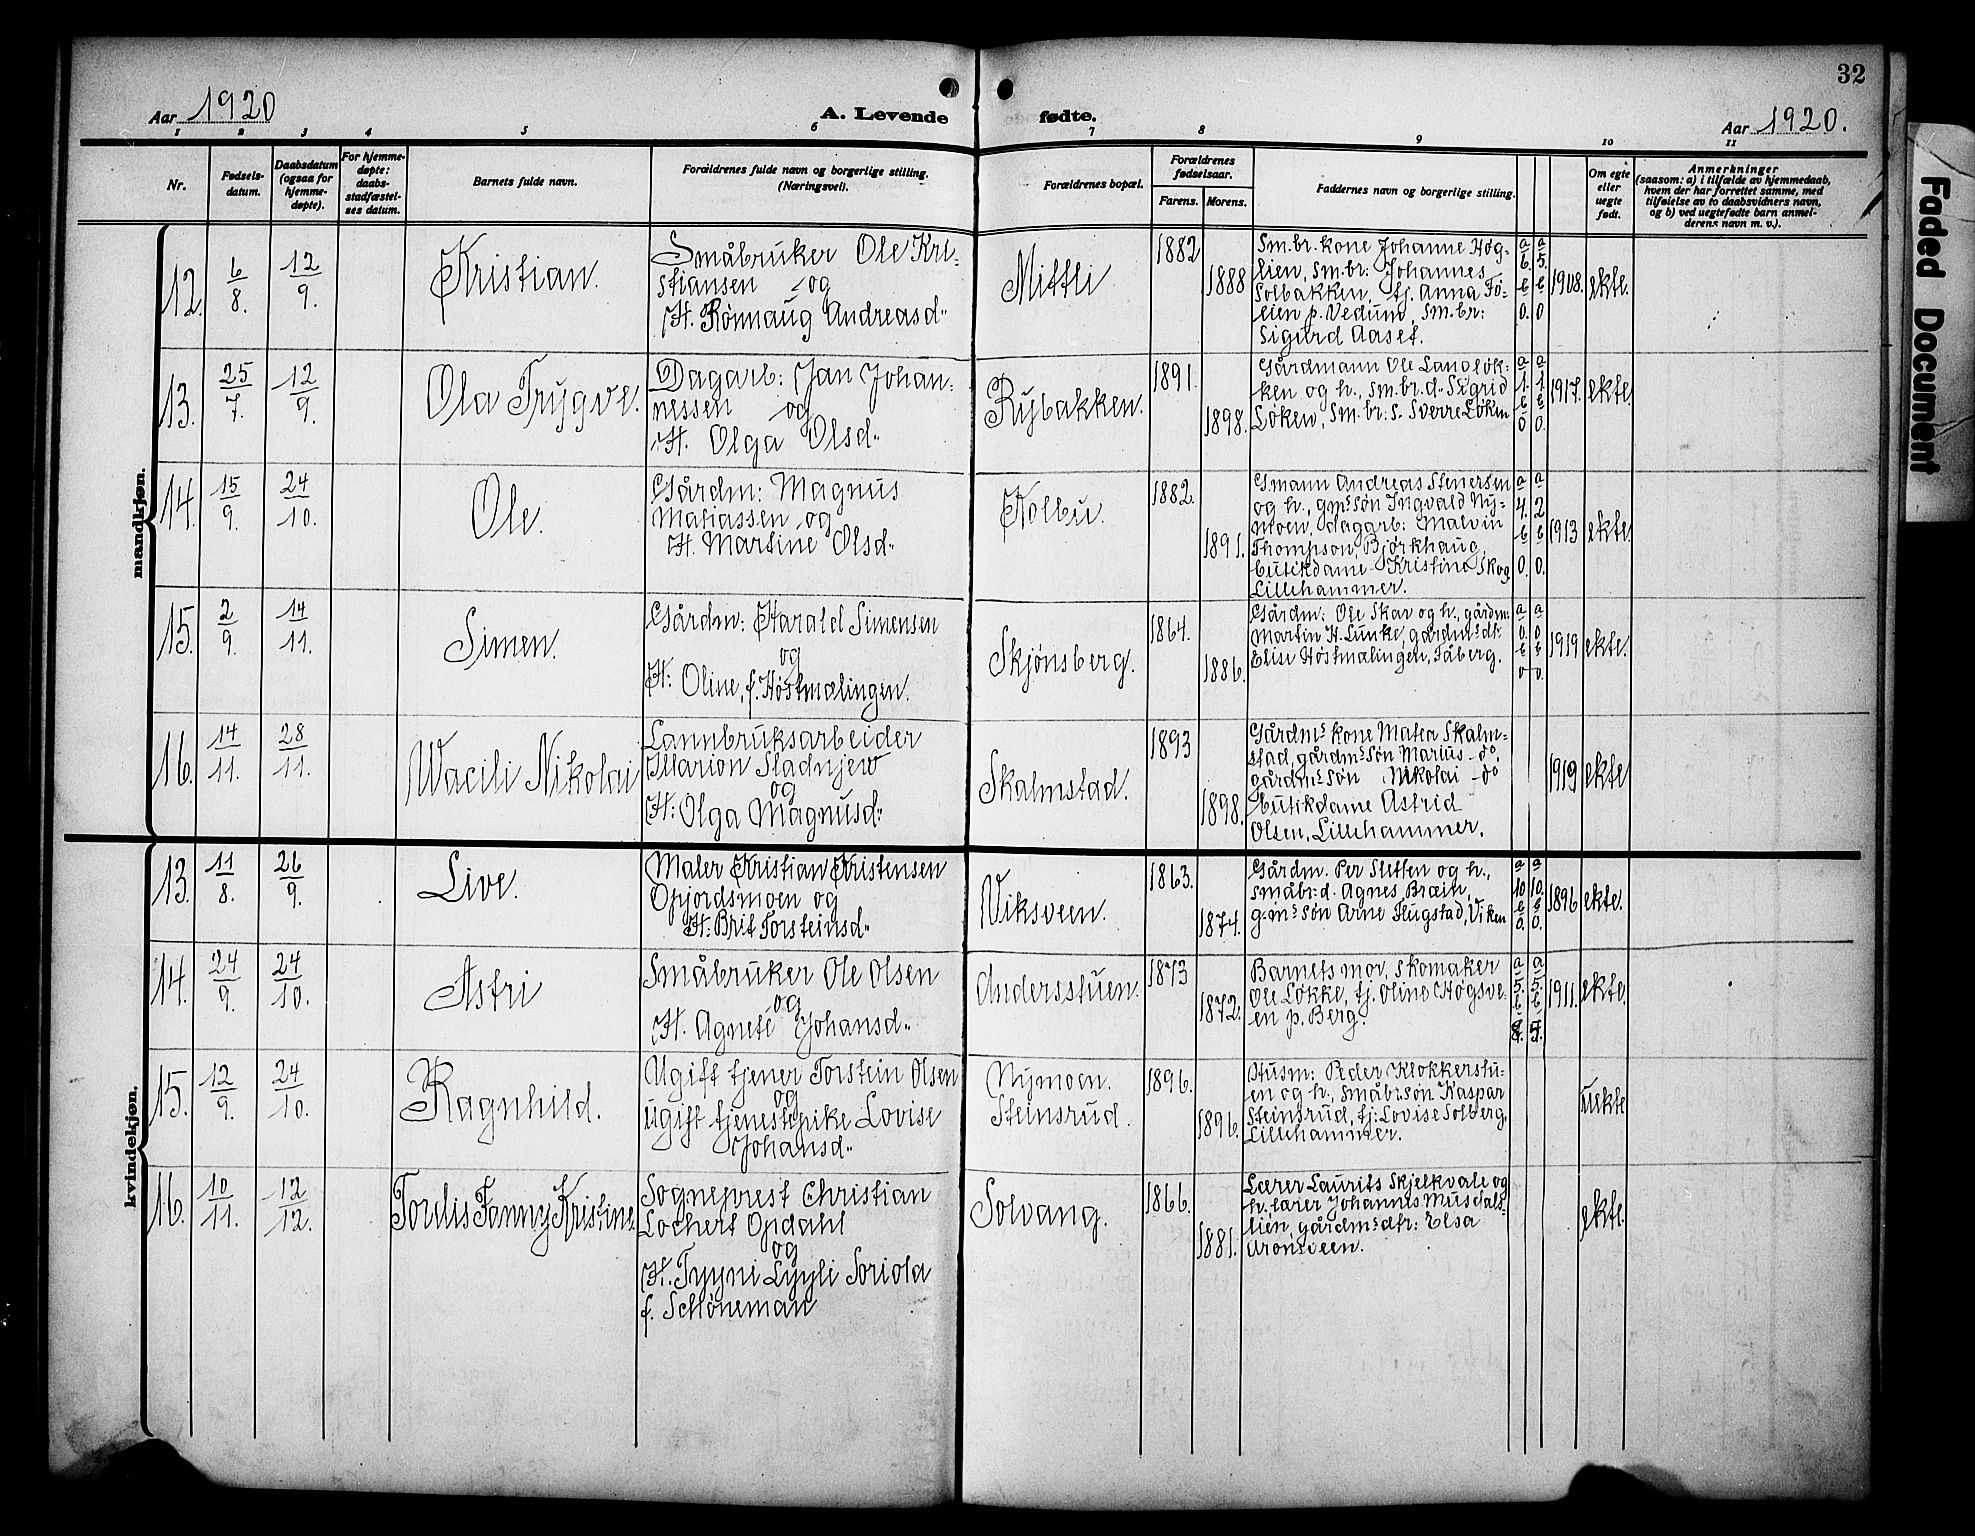 32
Faded Document
Aar 1920
A. Levende
fødte.
Aar 1920.
1 2 3 4 5 6 7 8 9 10 11
Nr.
Fødsels-
datum.
Daabsdatum
(ogsaa for
hjemme-
døpte).
For hjemme-
døpte:
daabs-
stadfæstel-
ses datum.
Barnets fulde navn.
Forældrenes fulde navn og borgerlige stilling.
(Næringsvei).
Forældrenes bopæl.
Forældrenes
fødselsaar.
Farens. Morens.
Faddernes navn og borgerlige stilling.
Om egte
eller
uegte
født.
Anmerkninger
(saasom: a) i tilfælde av hjemmedaab,
hvem der har forrettet samme, med
tilføielse av to daabsvidners navn,
og b) ved uegtefødte barn anmel-
derens navn m. v.).
mandkjøn.
12. 6/8. 12/9. Kristian.
Småbruker Ole Kri-
stiansen og
H. Rønnaug Andreasd..
Mittli
1882
1888
Sm.br. kone Johanne Høg-
lien, sm.br: Johannes
Solbakken, tj. Anna Fø-
leien p. Vedum, sm.br:
Sigurd Aaset.
a a
6. 5.
b b
0. 0
1908. ekte.
13. 25/7. 12/9. Ola Trygve.
Dagarb: Jan Johan-
nessen og
H. Olga Olsd..
Rybakken.
1891.
1898.
Gårdmann Ole Landløk-
ken og h., sm.br.d. Sigrid
Løken, sm.br:s. Sverre Løken
a a
1. 1.
b b
0 0.
1917. ekte.
14. 15/9. 24/10. Ole.
Gårdm: Magnus
Matiassen og
H. Martine Olsd..
Kolbu.
1882.
1891.
G.mann Andreas Stenersen
og h., gm.s søn Ingvald Ny-
moen, dagarb: Malvin
Thompson, Bjørkhaug,
butikdame Kristine Skog
Lillehammer.
a a
4. 2
b b
0. 0.
1913 ekte.
15. 2/9. 14/11. Simen.
Gårdm: Harald Simensen
og
H: Oline, f. Høstmælingen.
Skjønsberg.
1864.
1886.
Gårdm: Ole Skar og h., gårdm:
Martin H. Lunke, gårdm.s dtr.
Elise Høstmælingen, Fåberg.
a a
0. 0
b b
0 0.
1919 ekte.
16. 14/11. 28/11. Wacili Nikolai
Lannbruksarbeider
Illarion Sladnjew
og
H: Olga Magnusd:
Skalmstad.
1893
1898.
Gårdm.s kone Matea Skalm-
stad, gårdm.s søn Marius - do.
gårdm.s søn Nikolai - do
butikdame Astrid
Olsen, Lillehammer.
1919 ekte
kvindekjøn.
13. 11/8. 26/9. Live.
Maler Kristian Kristensen
Gjordsmoen og
H: Brit Torsteinsd..
Viksveen.
1863.
1874.
Gårdm. Per Sletten og h.,
småbr:d. Agnes Bræin,
g.m.s søn Arne Flugstad, Viken
a a
10 10.
b b
0. 0.
1896 ekte.
14. 24/9. 24/10. Astri
Småbruker Ole Olsen
og
H. Agnete Johansd..
Andersstuen.
1873
1872.
Barnets mor, skomaker
Ole Løkke, tj. Oline Høgsve-
en p. Berg.
a a
5. 5.
b b
1911. ekte.
15. 12/9. 24/10. Ragnhild.
Ugift tjener Torstein Olsen
og
ugift tjenestpike Lovise
Johansd..
Nymoen.
Steinsrud.
1896.
1896.
Husm: Peder Klokkerstu-
en og h., småbr.søn Kaspar
Steinsrud, tj: Lovise Solberg,
Lillehammer.
uekte
16. 10/11. 12/12. Tordis Fanny Kristine.
Sogneprest Christian
Lochert Opdahl
og
H. Tyyni Lyyli Soriola
f. Schöneman
Solvang.
1866.
1881.
Lærer Laurits Skjelkvale og
h. lærer Johannes Musdals-
lien, gårdm.s dtr: Elsa
Aronsveen.
ekte.